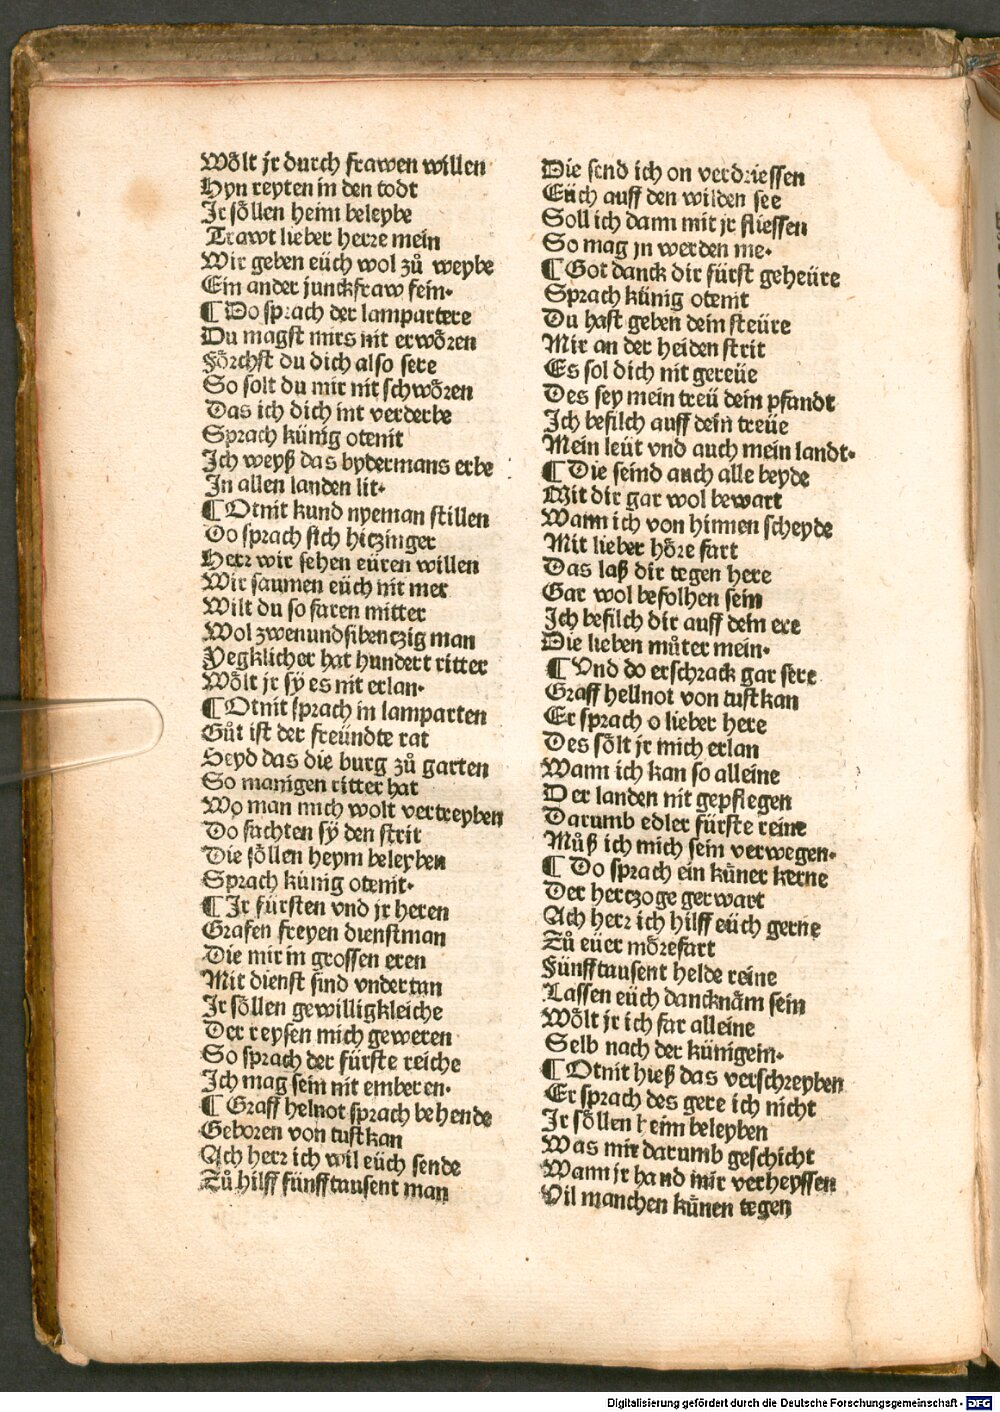 Wõlt jr durch frawen willen
Hyn reyten in den todt
Ir sõllen heim beleybe
Trawt lieber herre mein
Wir geben eüch wol zů weybe
Ein ander junckfraw fein.
¶ Do sprach der lampartere
Du magst mirs nit erwõren
Fõrchst du dich also sere
So solt du mir nit schwõren
Das ich dich int verderbe
Sprach künig otenit
Ich weyß das bydermans erbe
In allen landen lit.
¶ Otnit kund nyeman stillen
Do sprach sich hiczinger
Herr wir sehen eüren willen
Wir saumen eüch nit mer
Wilt du so faren mitter
Wol zwenundsibenczig man
Yegklicher hat hundert ritter
Wõlt jr sÿ es nit erlan.
¶ Otnit sprach in lamparten
Gůt ist der freündte rat
Seyd das die burg zů garten
So manigen ritter hat
Wo man mich wolt vertreyben
Do fachten sÿ den strit
Die sõllen heym beleyben
Sprach künig otenit.
¶ Ir fürsten vnd jr heren
Grafen freyen dienstman
Die mir in grossen eren
Mit dienst sind vndertan
Ir sõllen gewilligkleiche
Der reysen mich geweren
So sprach der fürste reiche
Ich mag sein nit emberen.
¶ Graff helnot sprach behende
Geboren von tustkan
Ach herr ich wil eüch sende
Zů hilff fünfftausent man
Die send ich on verdriessen
Eüch auff den wilden see
Soll ich dann mit jr fliessen
So mag jn werden me.
¶ Got danck dir fürst geheüre
Sprach künig otenit
Du hast geben dein steüre
Mir an der heiden strit
Es sol dich nit gereüe
Des sey mein treü dein pfandt
Ich befilch auff dein treüe
Mein leüt vnd auch mein landt.
¶ Die seind auch alle beyde
Mit dir gar wol bewart
Wann ich von hinnen scheyde
Mit lieber hõre fart
Das laß dir tegen here
Gar wol befolhen sein
Ich befilch dir auff dein ere
Die lieben můter mein.
¶ Vnd do erschrack gar sere
Graff hellnot von tustkan
Er sprach o lieber here
Des sõlt jr mich erlan
Wann ich kan so alleine
Der landen nit gepflegen
Darumb edler fürste reine
Můß ich mich sein verwegen.
¶ Do sprach ein kűner kerne
Der herczoge gerwart
Ach herr ich hilff eüch gerne
Zů eüer mõrefart
Fünfftausent helde reine
Lassen eüch dancknãm sein
Wõlt jr ich far alleine
Selb nach der künigein.
¶ Otnit hieß das verschreyben
Er sprach des gere ich nicht
Ir sõllen heim beleyben
Was mir darumb geschicht
Wann jr hand mir verheyssen
Vil manchen kűnen tegen
Digitalisierung gefördert durch die Deutsche Forschungsgemeinschaft - DFG